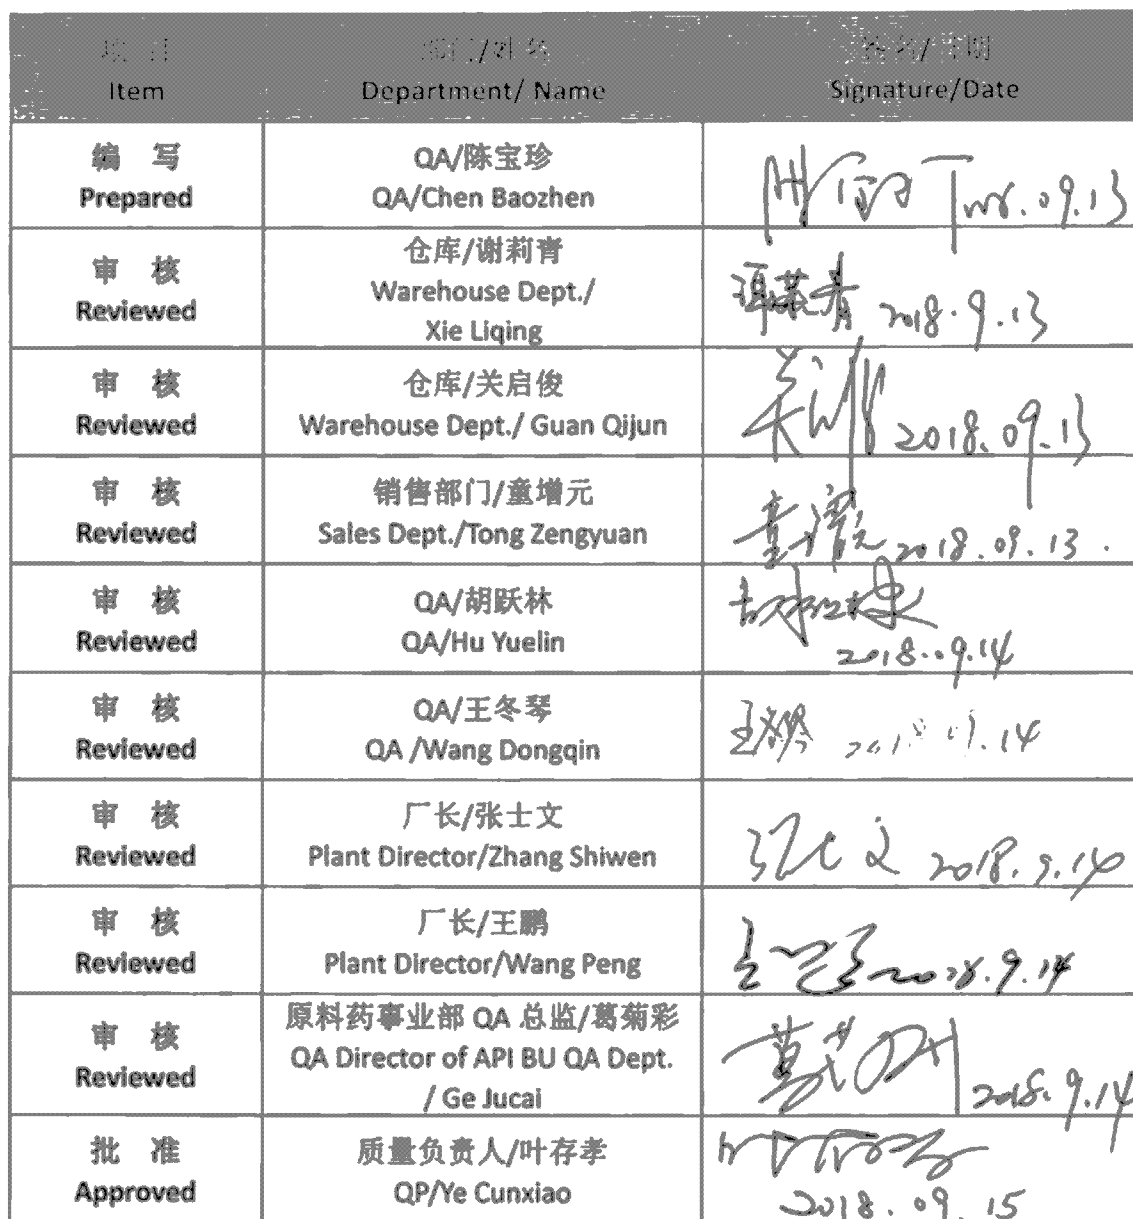 项 目
部门/姓名
签名/日期
Item
Department/ Name
Signature/Date
编 写
Prepared
QA/陈宝珍
QA/Chen Baozhen
09.13
审 核
Reviewed
仓库/谢莉青
Warehouse Dept./
Xie Liqing
2018.9.13
审 核
Reviewed
仓库/关启俊
Warehouse Dept./ Guan Qijun
2018.09.13
审 核
Reviewed
销售部门/童增元
Sales Dept./Tong Zengyuan
童增元 2018.09.13.
审 核
Reviewed
QA/胡跃林
QA/Hu Yuelin
胡跃林
2018.09.14
审 核
Reviewed
QA/王冬琴
QA /Wang Dongqin
王冬琴 2018.09.14
审 核
Reviewed
厂长/张士文
Plant Director/Zhang Shiwen
张士文 2018.9.14
审 核
Reviewed
厂长/王鹏
Plant Director/Wang Peng
2018.9.14
审 核
Reviewed
原料药事业部 QA 总监/葛菊彩
QA Director of API BU QA Dept.
/ Ge Jucai
2018.9.14
批 准
Approved
质量负责人/叶存孝
QP/Ye Cunxiao
2018.09.15